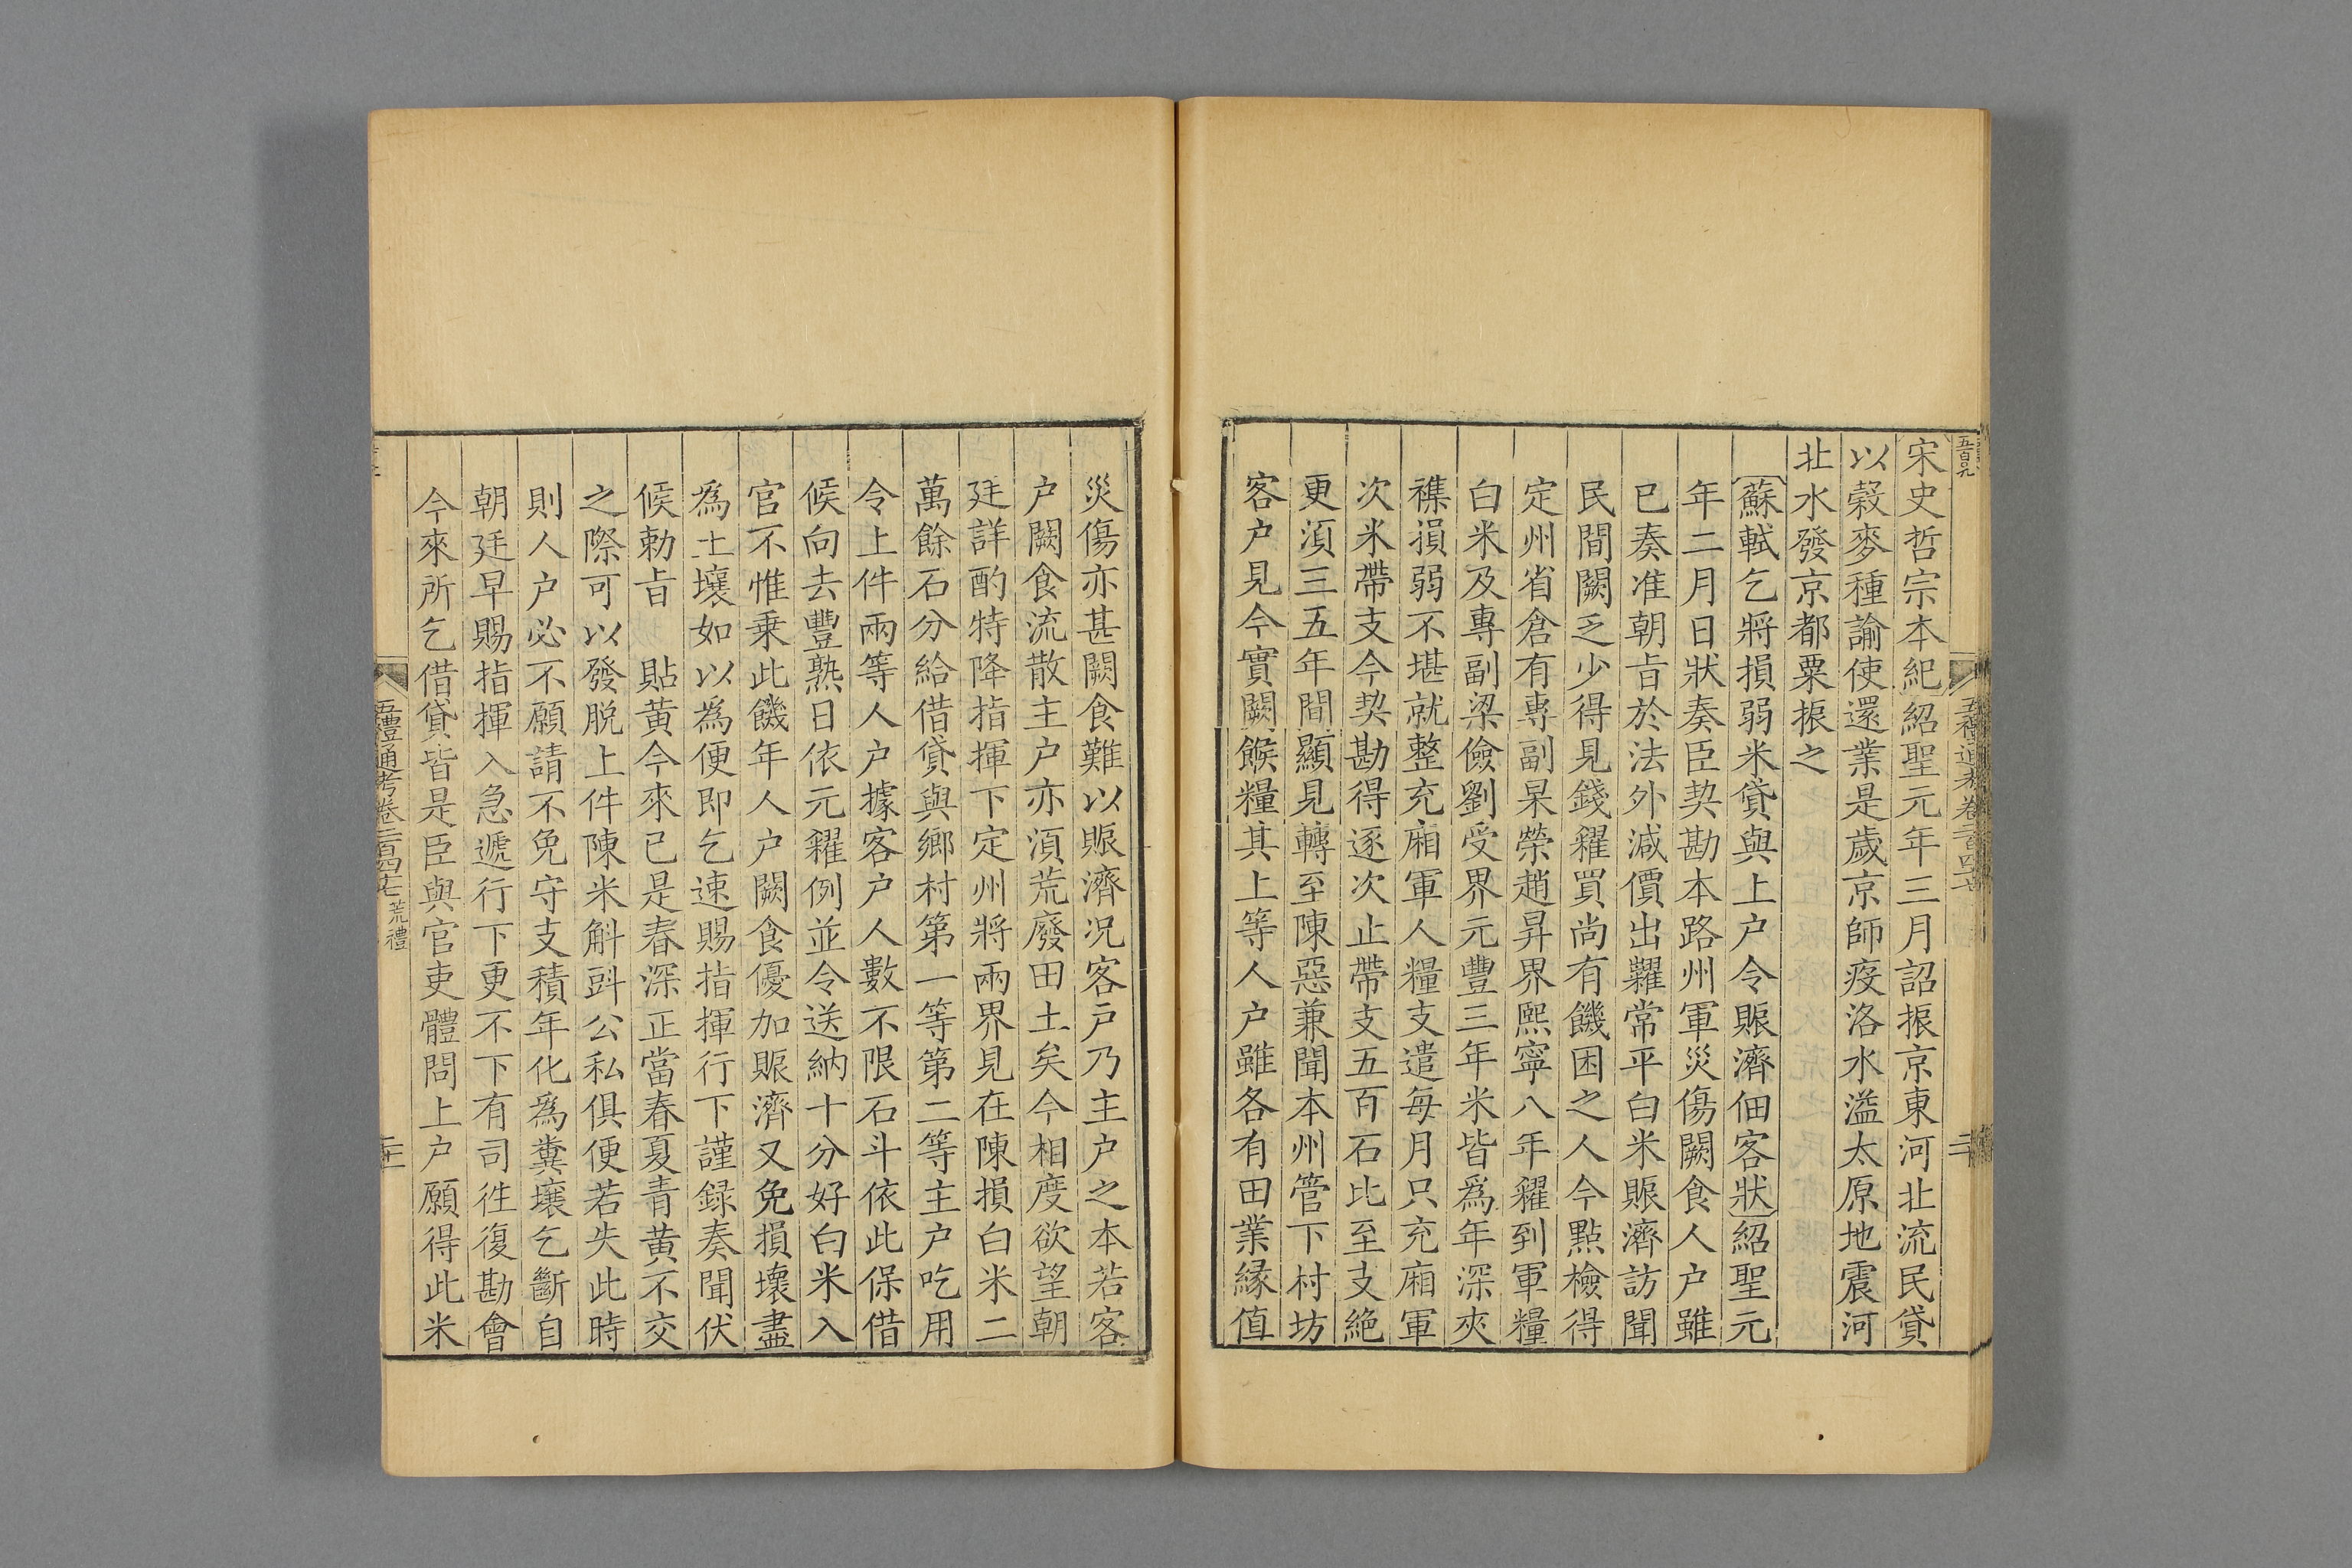 宋史哲宗本紀紹聖元年三月詔振京東河北流民貸
以穀麥種諭使還業是歲京師疫洛水溢太原地震河
北水發京都粟振之
蘇軾乞將損弱米貸與上户令賑濟佃客狀紹聖元
年二月日狀奏臣契勘本路州軍災傷闕食人户雖
已奏准朝㫖於法外減價出糶常平白米賑濟訪聞
民間闕乏少得見錢糴買尚有饑困之人今點檢得
定州省倉有專副杲榮趙昇界熙寧八年糴到軍糧
白米及專副梁儉劉受界元豐三年米皆爲年深夾
襍損弱不堪就整充廂軍人糧支遣每月只充廂軍
次米帶支今契勘得逐次止帶支五百石比至支絶
更湏三五年間顯見轉至陳惡兼聞本州管下村坊
客户見今實闕餱糧其上等人户雖各有田業縁值
災傷亦甚闕食難以賑濟况客戸乃主户之本若客
户闕食流散主户亦湏荒廢田土矣今相度欲望朝
廷詳酌特降指揮下定州將兩界見在陳損白米二
萬餘石分給借貸與鄉村第一等第二等主户吃用
令上件兩等人户據客户人數不限石斗依此保借
候向去豐熟日依元糴例並令送納十分好白米入
官不惟乗此饑年人户闕食優加賑濟又免損壞盡
爲土壤如以為便即乞速賜指揮行下謹録奏聞伏
候勅㫖　貼黄今來已是春深正當春夏青黄不交
之際可以發脱上件陳米斛㪷公私俱便若失此時
則人户必不願請不免守支積年化爲糞壤乞斷自
朝廷早賜指揮入急遞行下更不下有司徃復勘會
今來所乞借貸皆是臣與官吏體問上户願得此米
五禮通考卷二百四十七 荒禮